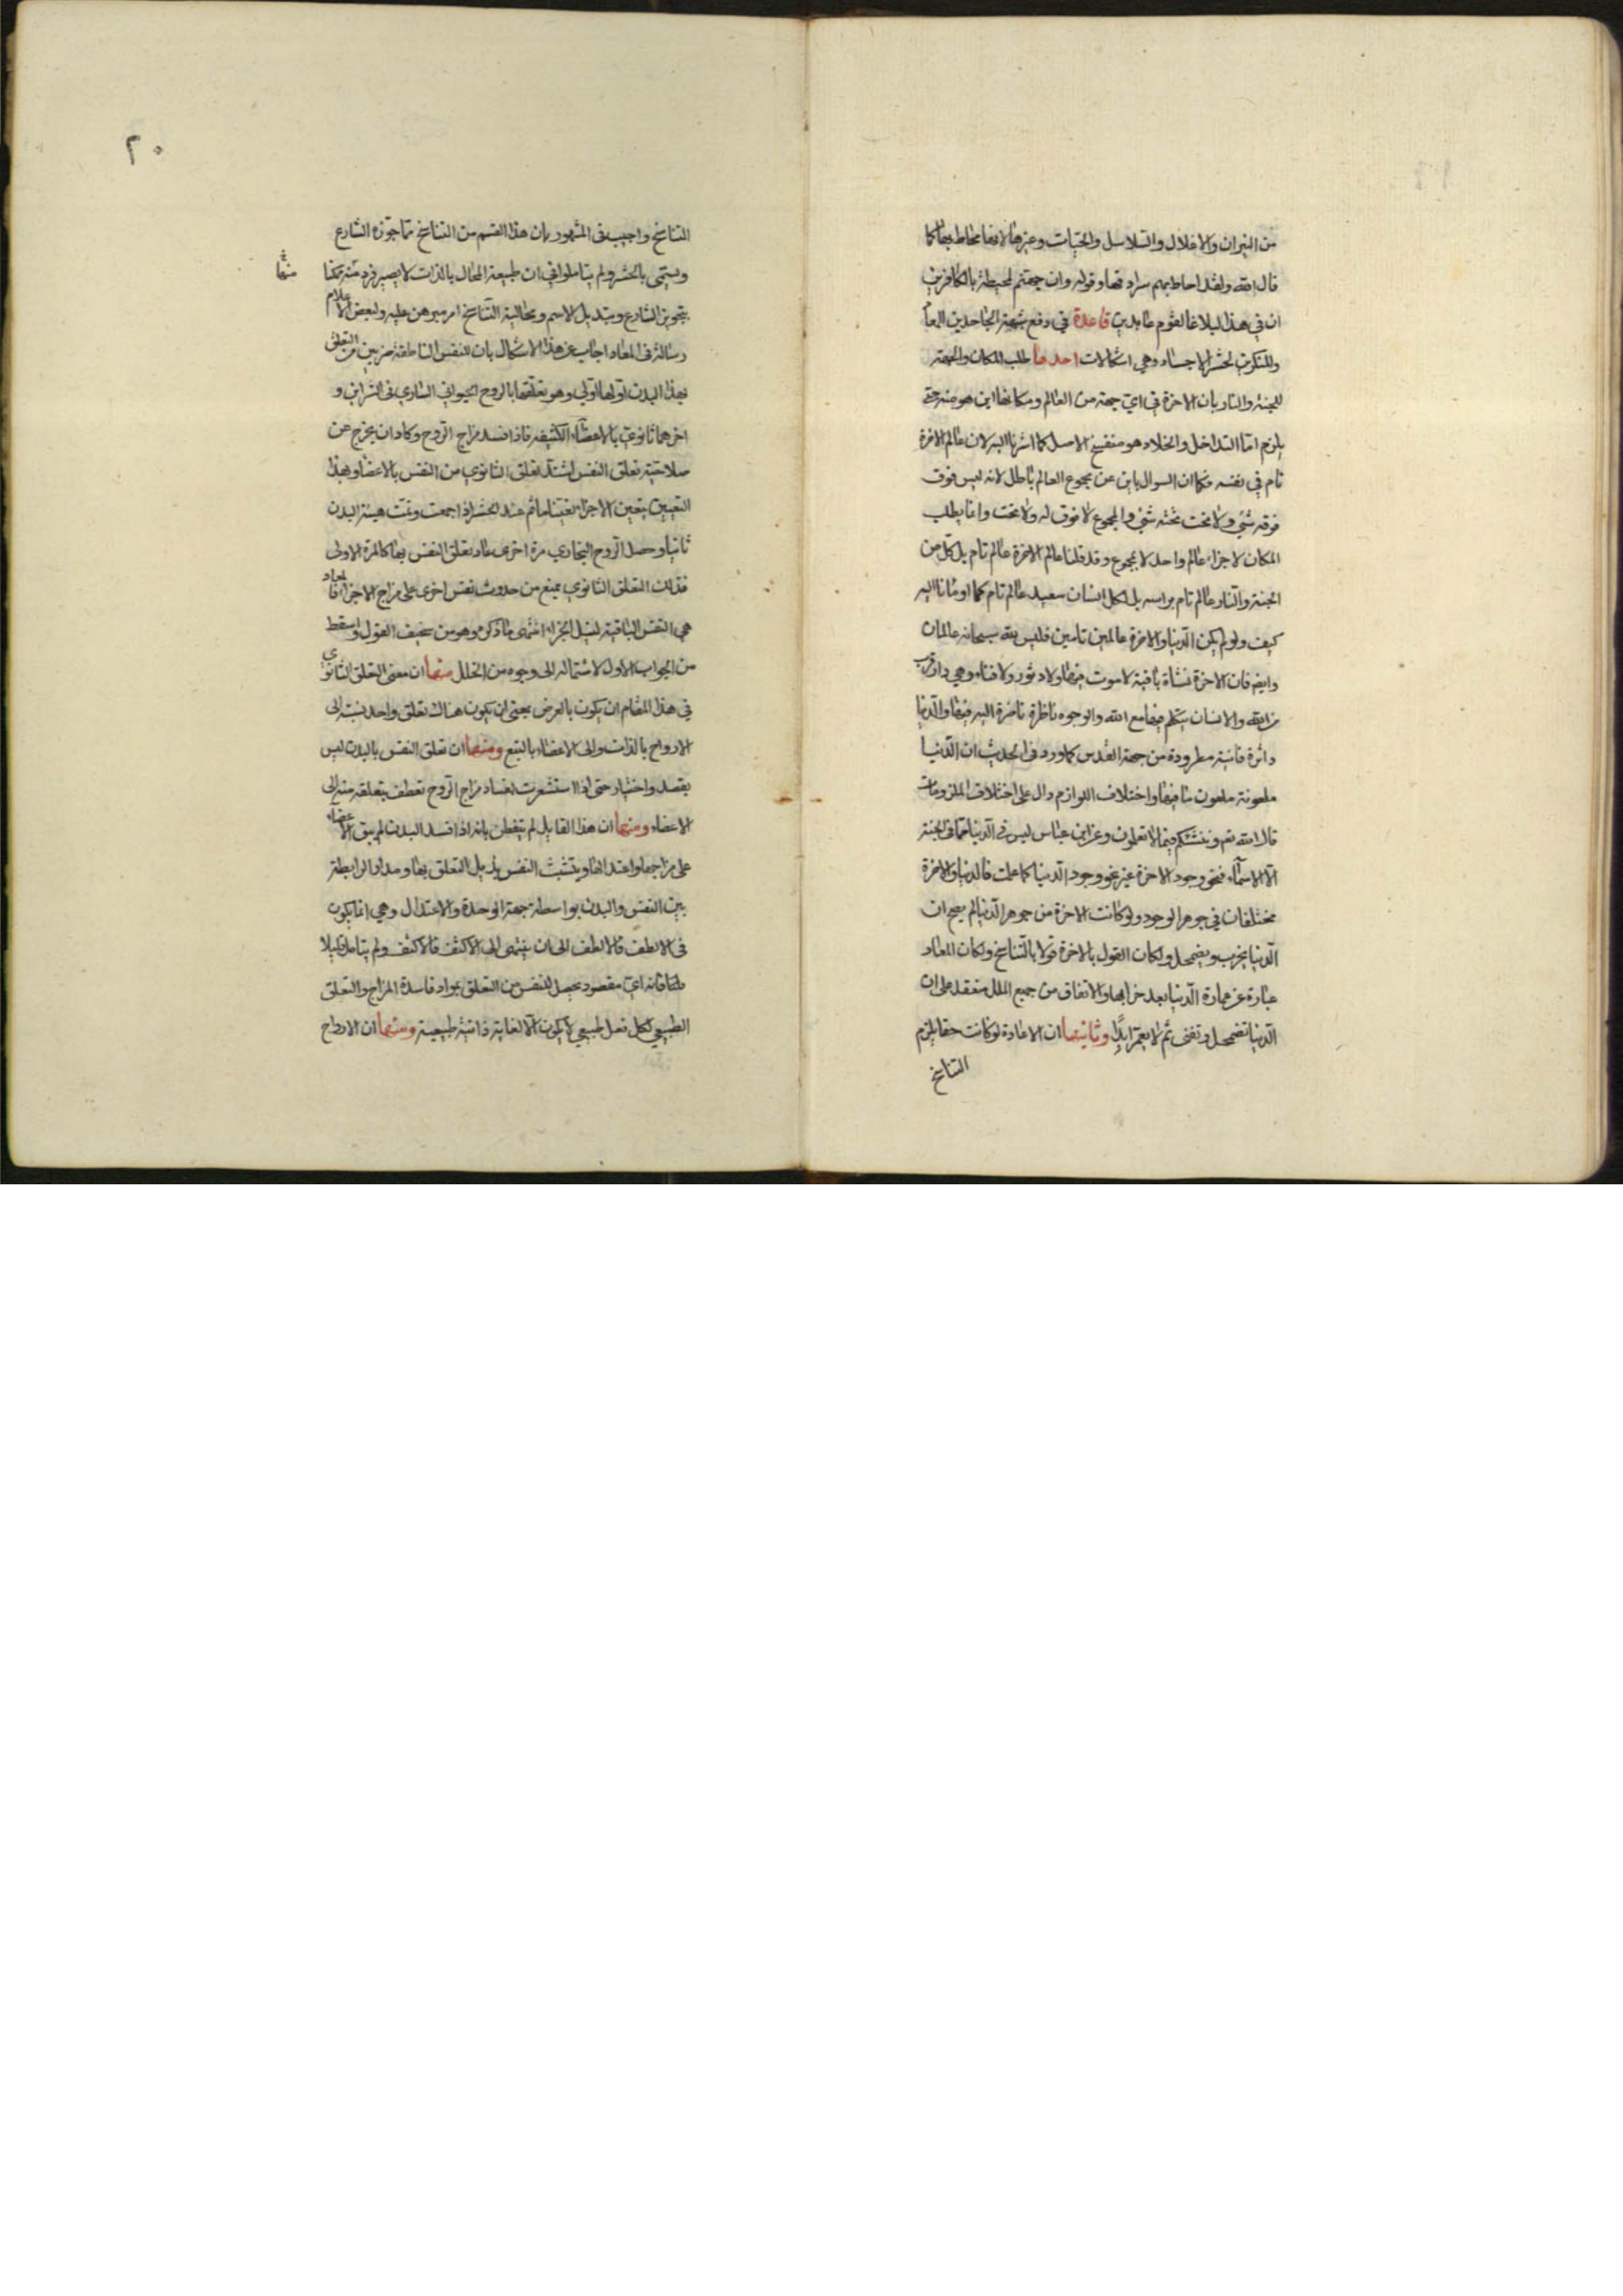 من النيران والاغلال والسلاسل والحيات وغيرها لانها محاط بها كما
قال الله ولقد احاط بهم سرادقها وقوله وان جهنم لمحيطة بالكافرين
ان في هذا لبلاغا لقوم عابدين قاعدة في دفع شبهة الجاحدين للمعاد
وللمنكرين لحشر الاجساد وهي اشكالات احدها طلب المكان والجهة
للجنة والنار بان الاخرة في اي جهة من العالم ومكانها اين هو منه حتى
يلزم اما التداخل والخلاء وهو منفسخ الاصل كما اشرنا اليه لان عالم الاخرة
تام في نفسه فكما ان السوال باين عن مجموع العالم باطل لانه ليس فوق
فوقه شيء ولا تحت تحته شيء والمجموع لا فوق له ولا تحت وانما يطلب
المكان لاجزاء عالم واحد لا لمجموع وقد قلنا عالم الاخرة عالم تام بل كل من
الجنة والنار عالم تام براسه بل لكل انسان سعيد عالم تام كما اومانا اليه
كيف ولو لم يكن الدنيا والاخرة عالمين تامين فليس لله سبحانه عالمان
وايضا فان الاخرة نشاة باقية لا موت فيها ولا دثور ولا فناء وهي دار قرب
من الله والانسان يتكلم فيها مع الله والوجوه ناظرة ناضرة اليه فيها والدنيا
داثرة فانية مطرودة من جهة القدس كما ورد في الحديث ان الدنيا
ملعونة ملعون ما فيها واختلاف اللوازم دال على اختلاف الملزومات
قال الله تعم وننشئكم فيما لا تعلمون وعن ابن عباس ليس في الدنيا مما في الجنة
الا الاسماء فنحو وجود الاخرة غير نحو وجود الدنيا كما علمت فالدنيا والاخرة
مختلفان في جوهر الوجود ولو كانت الاخرة من جوهر الدنيا لم يصح ان
الدنيا يخرب ويضمحل ولكان القول بالاخرة قولا بالتناسخ ولكان المعاد
عبارة عن عمارة الدنيا بعد خرابها والاتفاق من جميع الملل منعقد على ان
الدنيا تضمحل وتفنى ثم لا يعمر ابدا وثانيتها ان الاعادة لو كانت حقا يلزم
التناسخ
٢٠
التناسخ واجيب في المشهور بان هذا القسم من التناسخ مما جوزه الشارع
ويسمى بالحشر ولم يتاملوا في ان طبيعة المحال بالذات لا يصير فرد منه ممكنا
بتجويز الشارع وبتديل الاسم ومحالية التناسخ امر مبرهن عليه ولبعض الاعلام
رسالة في المعاد اجاب عن هذا الاشكال بان للنفس الناطقة ضربين من التعلق
بهذا البدن اولهما اولي وهو تعلقها بالروح الحيواني الساري في الشرايين و
اخرهما ثانوي بالاعضاء الكثيفة فاذا فسد مزاج الروح وكاد ان يخرج عن
صلاحية تعلق النفس اشتد تعلق الثانوي من النفس بالاعضاء وبهذا
التعيين يتعين الاجزاء تعينا ما ثم عند الحشر اذا جمعت وتمت هيئة البدن
ثانيا وحصل الروح البخاري مرة اخرى عاد تعلق النفس بها كالمرة الاولى
فذلك التعلق الثانوي يمنع من حدوث نفس اخرى على مزاج الاجزاء فالمعاد
هي النفس الباقية لنيل الجزاء انتهى ما ذكره وهو من سخيف القول واسقط
من الجواب الاول لاشتماله الى وجوه من الخلل منها ان معنى التعلق الثانوي
في هذا المقام ان يكون بالعرض بمعنى ان يكون هناك تعلق واحد نسبته الى
الارواح بالذات والى الاعضاء بالتبع ومنها ان تعلق النفس بالبدن ليس
بقصد واختيار حتى اذا استشعرت بفساد مزاج الروح تعطف بتعلقه منه الى
الاعضاء ومنها ان هذا القايل لم يتفطن بانه اذا فسد البدن لم يبق الاعضاء
على مزاجها واعتدالها ويتشبث النفس بذيل التعلق بها ومدار الرابطة
بين النفس والبدن بواسطة جهة الوحدة والاعتدال وهي انما يكون
في الالطف فالالطف الى ان ينتهي الى الاكثف فالاكثف ولم يتامل قليلا
فانه اي مقصود يحصل للنفس من التعلق بمواد فاسدة المزاج والتعلق
الطبيعي لكل فعل طبيعي لا يكون الا لغاية ذاتية طبيعية ومنها ان الارواح